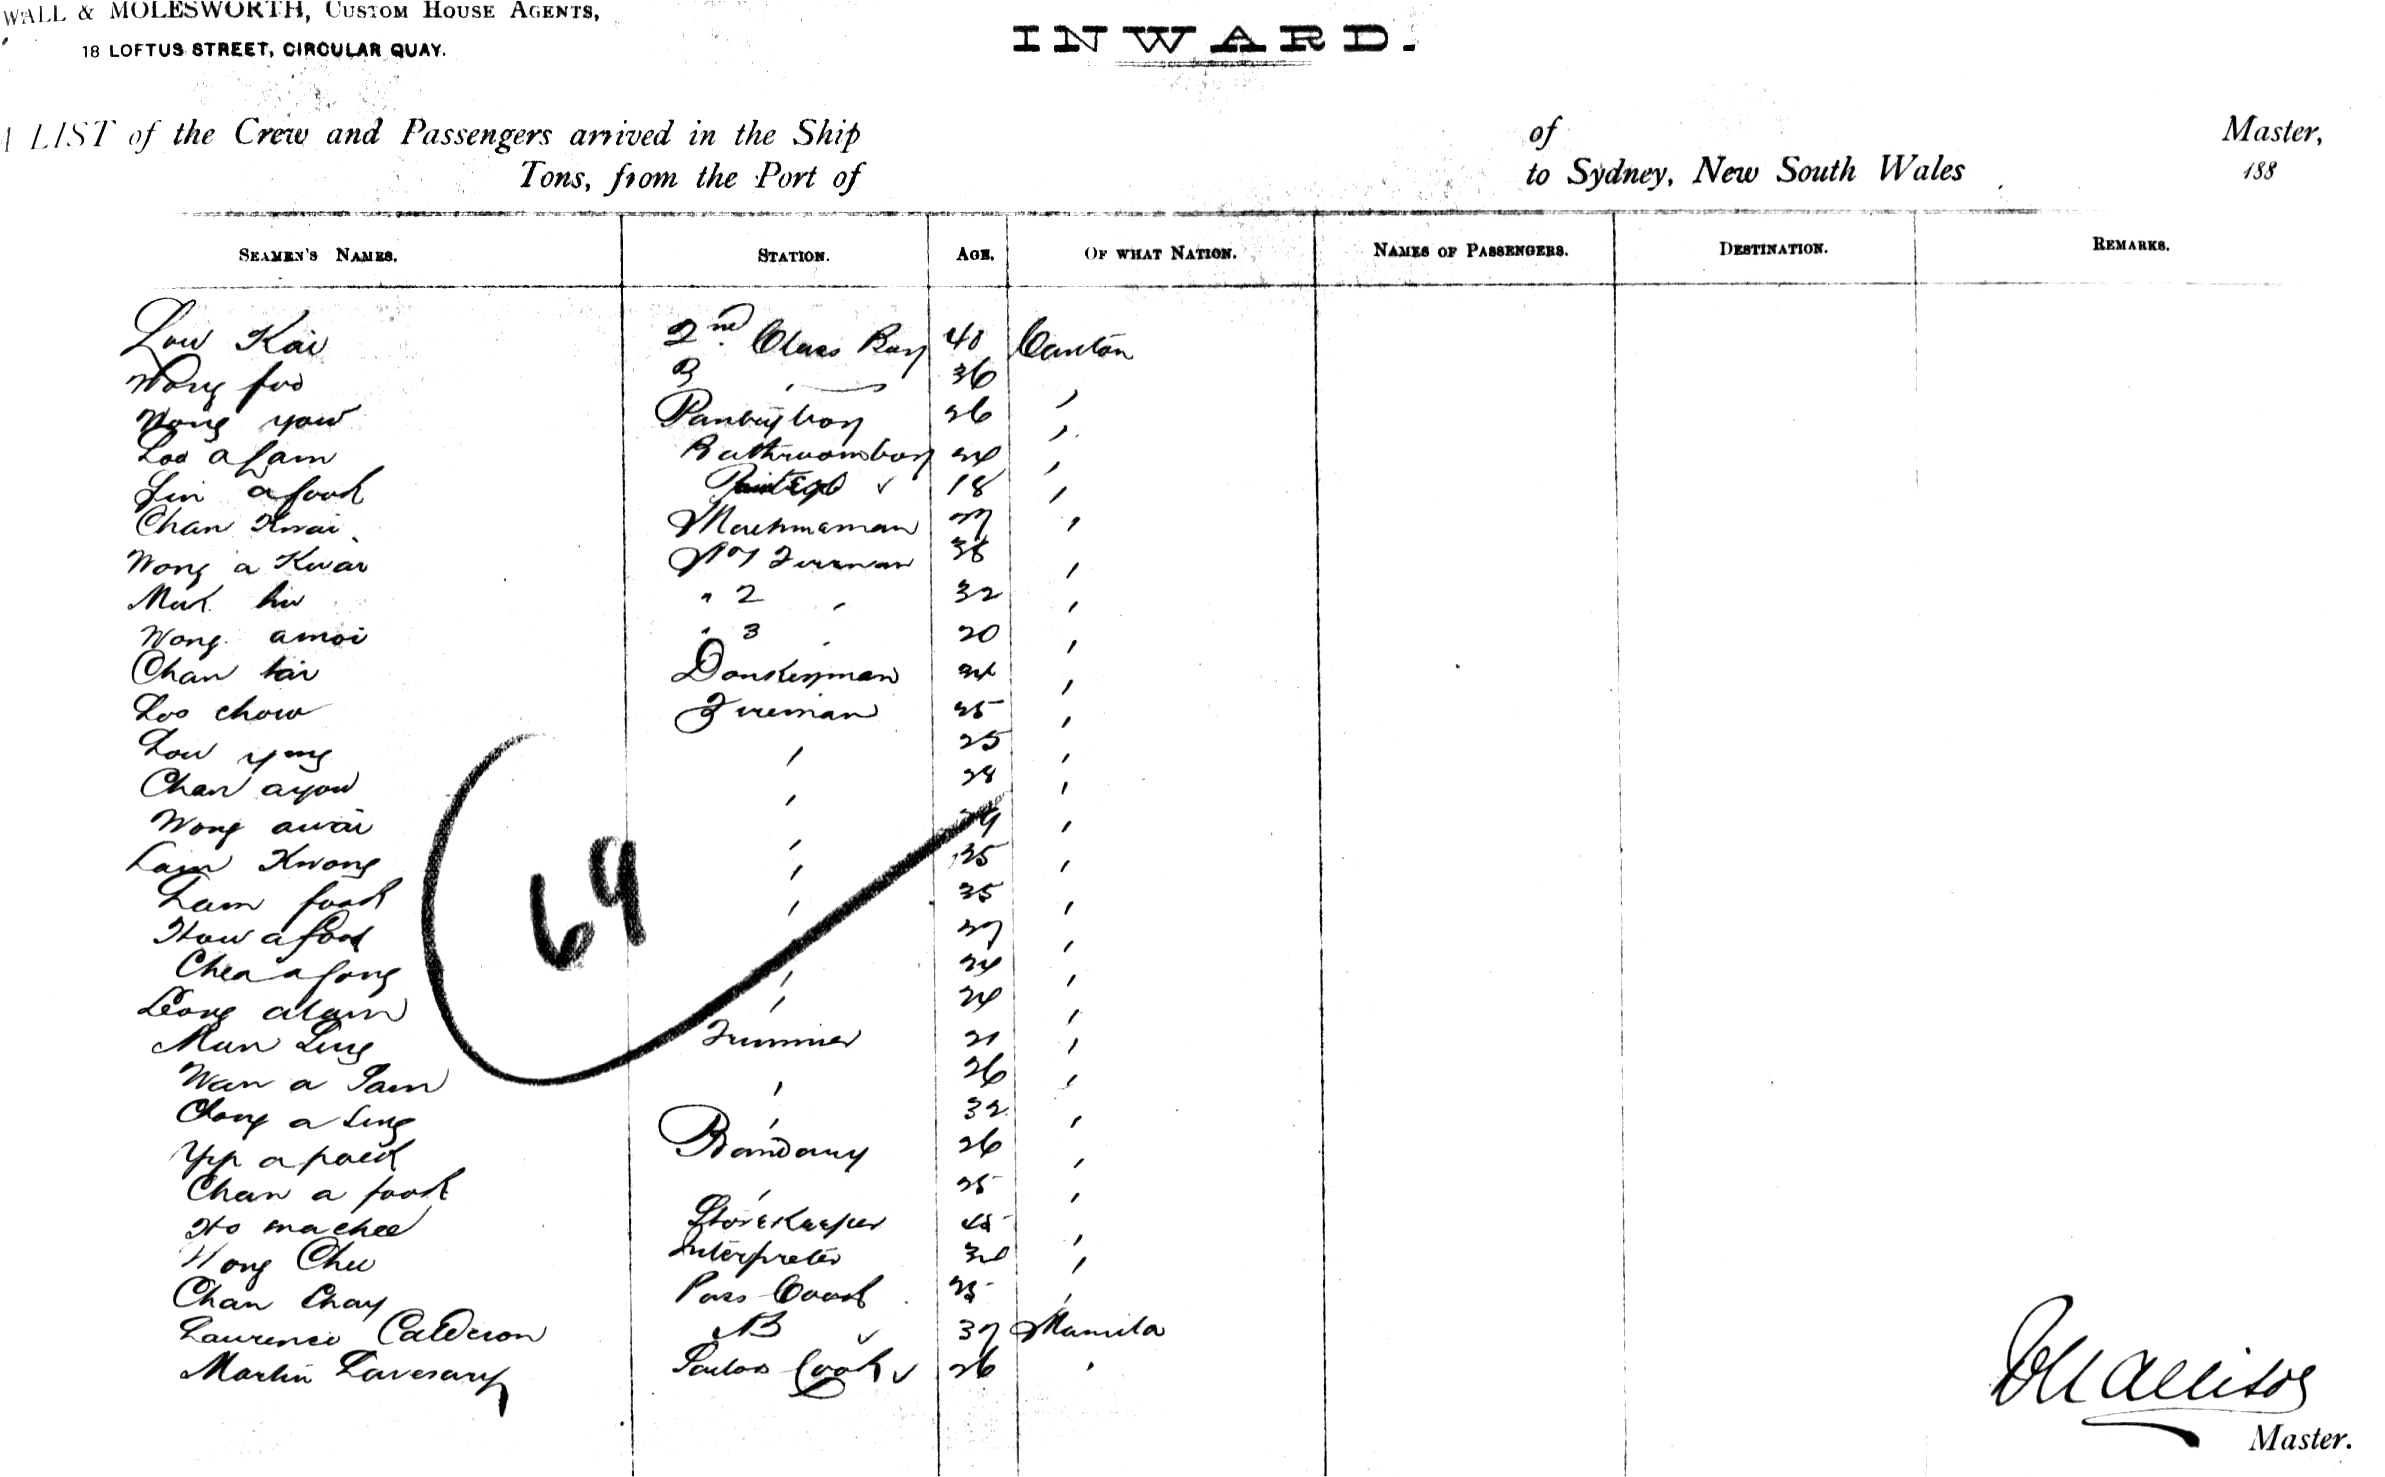 WALL & MOLESWORTH, CUSTOM HOUSE AGENTS,
18 LOFTUS STREET, CIRCULAR QUAY.
INWARD.
A LIST of the Crew and Passengers arrived in the Ship of Master,
Tons, from the Port of to Sydney, New South Wales 188
SEAMEN'S NAMES. STATION. AGE. OF WHAT NATION. NAMES OF PASSENGERS. DESTINATION. REMARKS.
Low Kai 2nd Class Boy 40 Canton
Wong foo 3 " 36 "
Wong yow Pantry boy 26 "
Loo a fam Bathroom boy 24 "
afook 18 "
Chan Kwai 37 "
Wong a Kwai No 1 Fireman 38 "
Muk " 2 " 32 "
Wong amoi " 3 " 20 "
Chan tai Donkeyman "
Loo chow Fireman 25 "
Low yong " 25 "
Chan ayow " 28 "
Wong awai " "
Lam Kwong " 35 "
Lam fook " 35 "
How a foo 37 "
Chea a fong " 24 "
Leong alum " 24 "
Mun Ling Trimmer 21 "
Wan a Sam " 26 "
Chong a Ling " 32 "
Yip a pack 26 "
Chan a fook " 25 "
Ho machee Storekeeper 45 "
Wong Chu Interpreter "
Chan Chay Pass Cook "
Laurence Calderon AB 37 Manila
Martin Cook 26 "
69
Allison
Master.